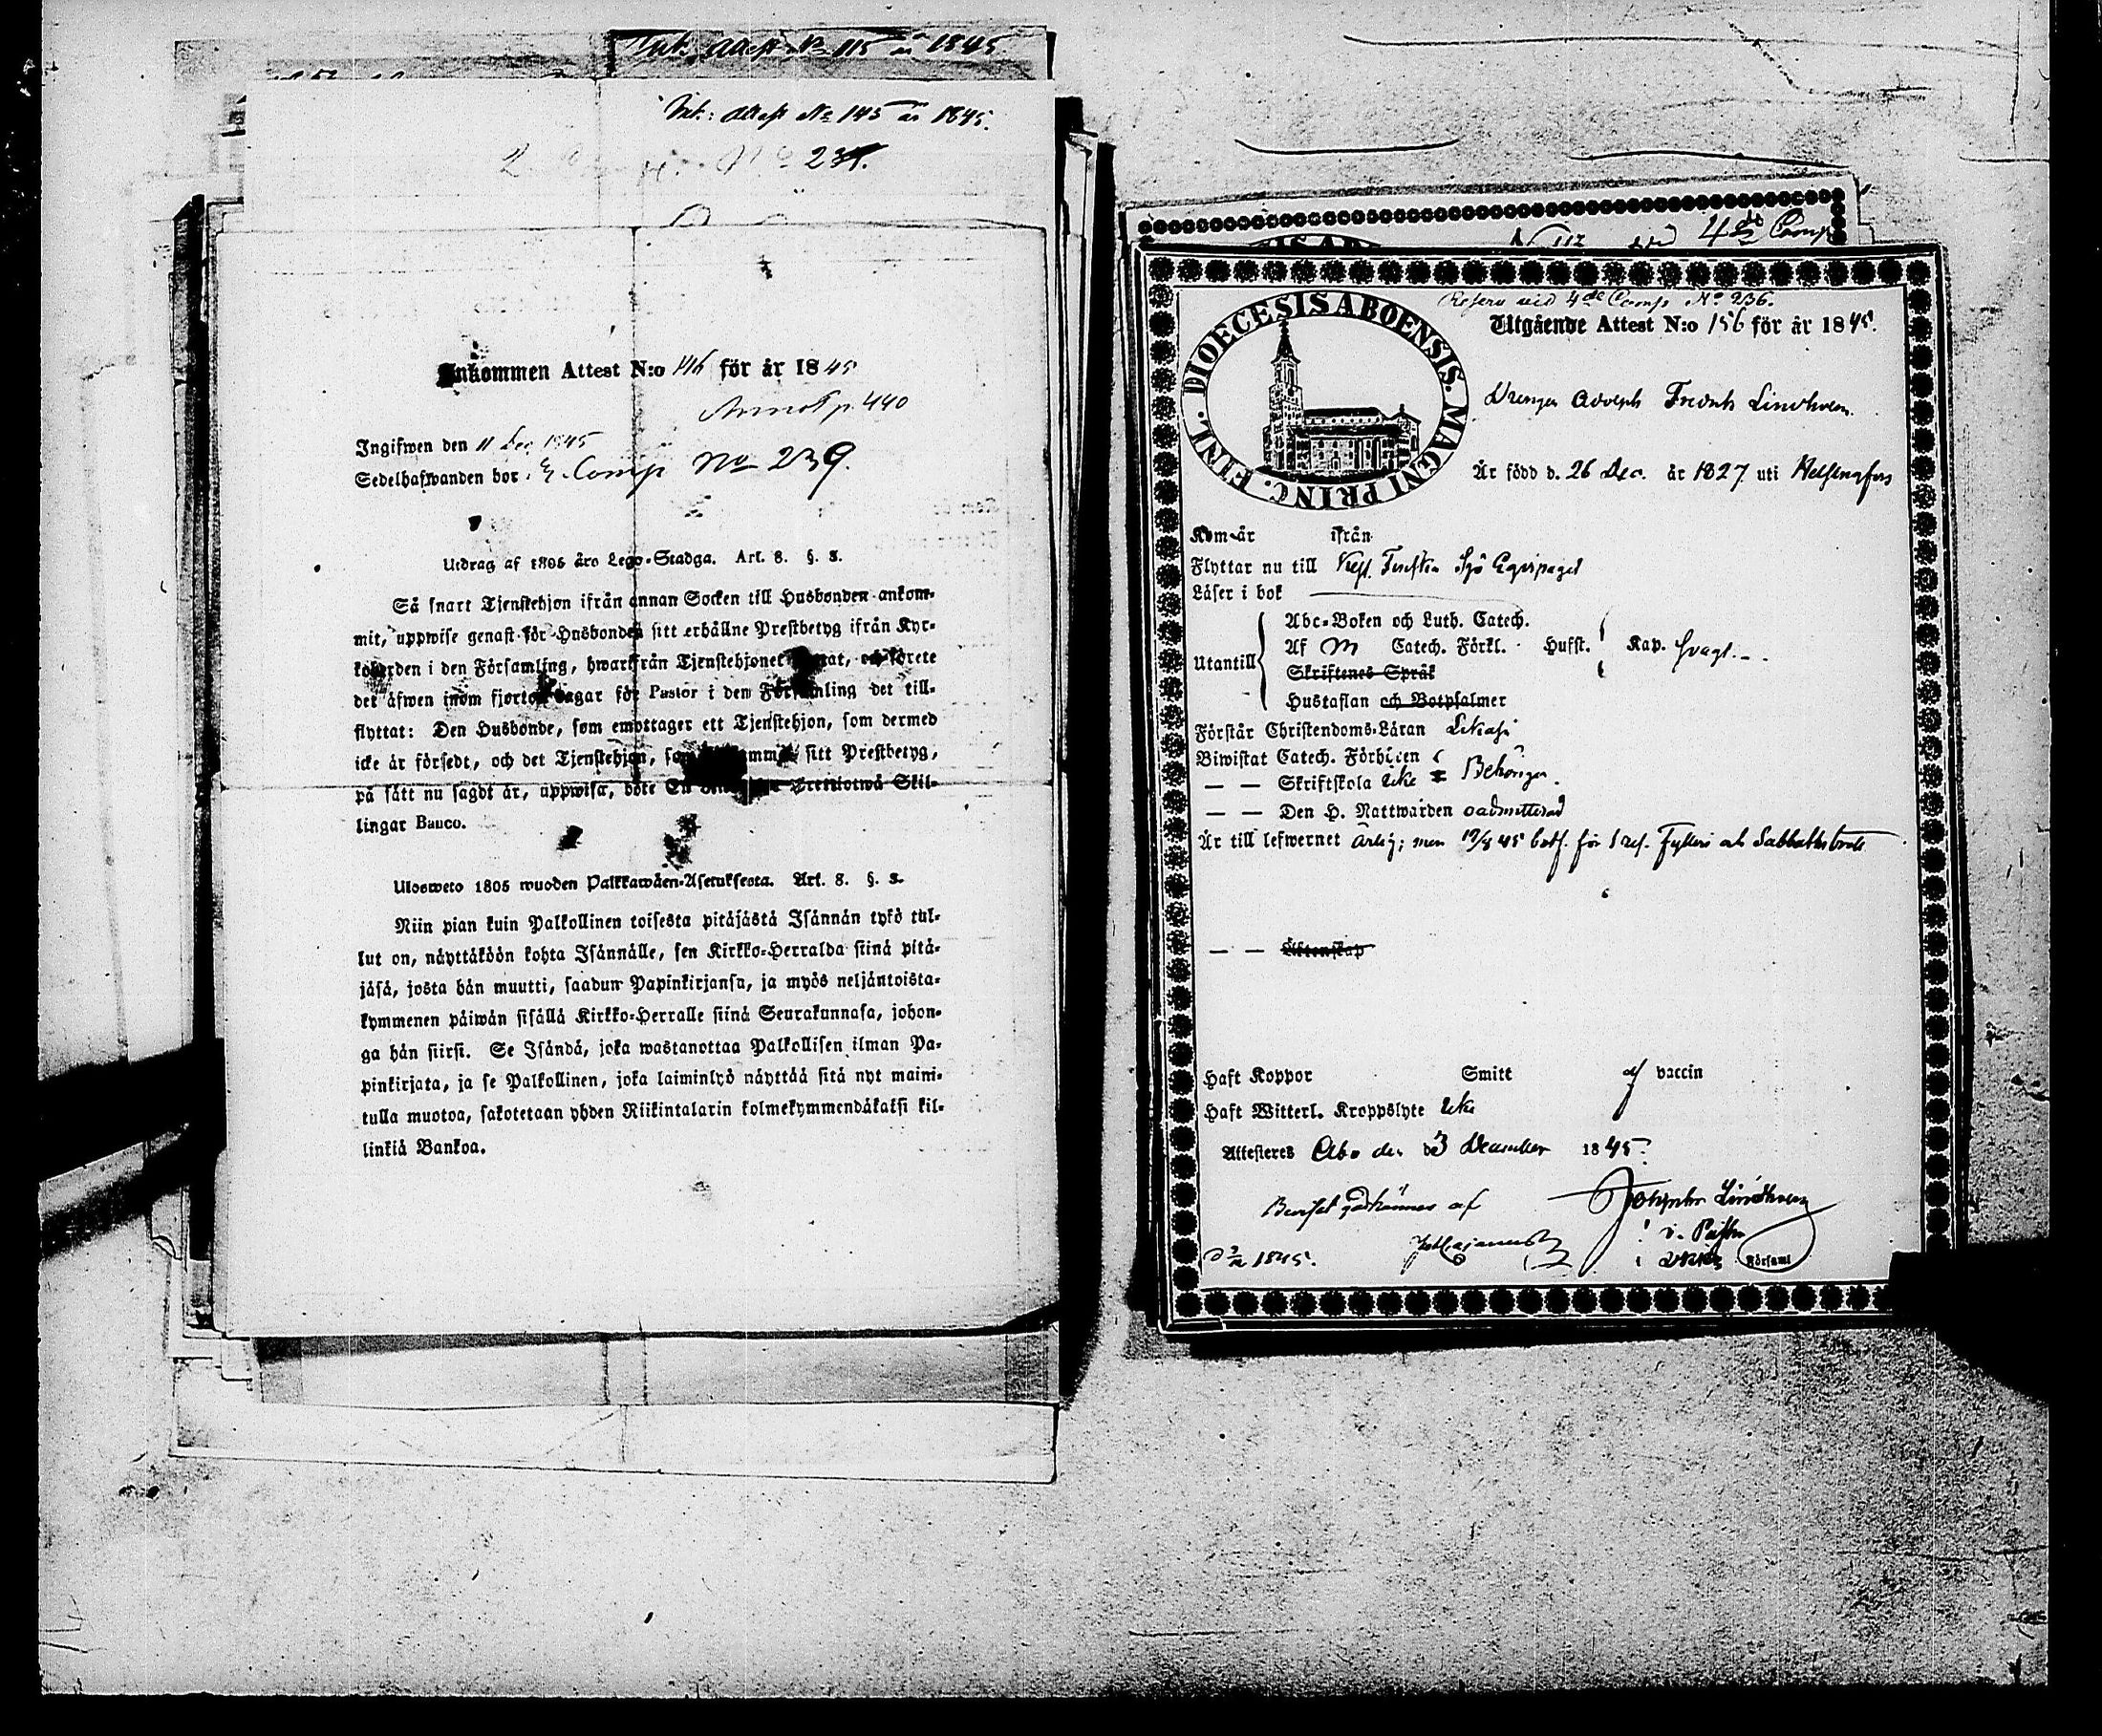 Ink. Attest No 115 år 1845
Ink: Attest No 145 år 1845.
No 237.
Inkommen Attest N:o 146 för år 1845
Annot p. 440
Ingifwen den 11 Dec. 1845
Sedelhafwanden bor Comp No 239.
Utdrag af 1805 års Lego-Stadga. Art. 8. §. 3.
Så snart Tjenstehjon ifrån annan Socken till Husbonden ankom-
mit, uppwise genast för Husbonden sitt erhållne Prestbetyg ifrån Kyr-
koherden i den Församling, hwarifrån Tjenstehjonet och förete
det äfwen inom fjorton dagar för Pastor i den Församling det till-
flyttat: Den Husbonde, som emottager ett Tjenstehjon, som dermed
icke är försedt, och det Tjenstehjon, som sitt Prestbetyg,
på sätt nu sagdt är, uppwisa, böte En Trettiotwå Skil-
lingar Banco.
Ulosweto 1805 wuoden Palkkawäen-Asetuksesta. Art. 8. §. 3.
Niin pian kuin Palkollinen toisesta pitäjästä Isännän tykö tul-
lut on, näyttäköön kohta Isännälle, sen Kirkko-Herralda siinä pitä-
jäsä, josta hän muutti, saadun Papinkirjansa, ja myös neljäntoista-
kymmenen päiwän sisällä Kirkko-Herralle siinä Seurakunnasa, johon-
ga hän siirsi. Se Isändä, joka wastanottaa Palkollisen ilman Pa-
pinkirjata, ja se Palkollinen, joka laiminlyö näyttää sitä nyt maini-
tulla muotoa, sakotetaan yhden Riikintalarin kolmekymmendäkaksi kil-
linkiä Bankoa.
4de Comp
DIOECESIS ABOENSIS. MAGNI PRINC. FINL.
Reserv vid 4de Comp No 236.
Utgående Attest N:o 156 för år 1845.
Drengen Adolph Fredrik Lindhren
Är född d. 26 Dec. år 1827 uti Helsingfors
Kom år ifrån
Flyttar nu till Sjö Equipaget
Läser i bok
Utantill
Abc-Boken och Luth. Catech.
Af M Catech. Förkl. Husst. Kap. svagt.
Skriftenes Språk
Hustaflan och Botpsalmer
Förstår Christendoms-Läran
Biwistat Catech. Förhören
— — Skriftskola Icke Behörigen
— — Den H. Nattwarden oadmitterad
Är till lefwernet ärlig; men 19/8 45 bötf. för 1 res. Fylleri och Sabbathsbrott
— — Äktenskap
Haft Koppor Smitt af vaccin
Haft Witterl. Kroppslyte Icke
Attesteras Åbo den 3 December 1845.
Beviset godkännes af
d 3/12 1845.
v. Pastor
i Församl